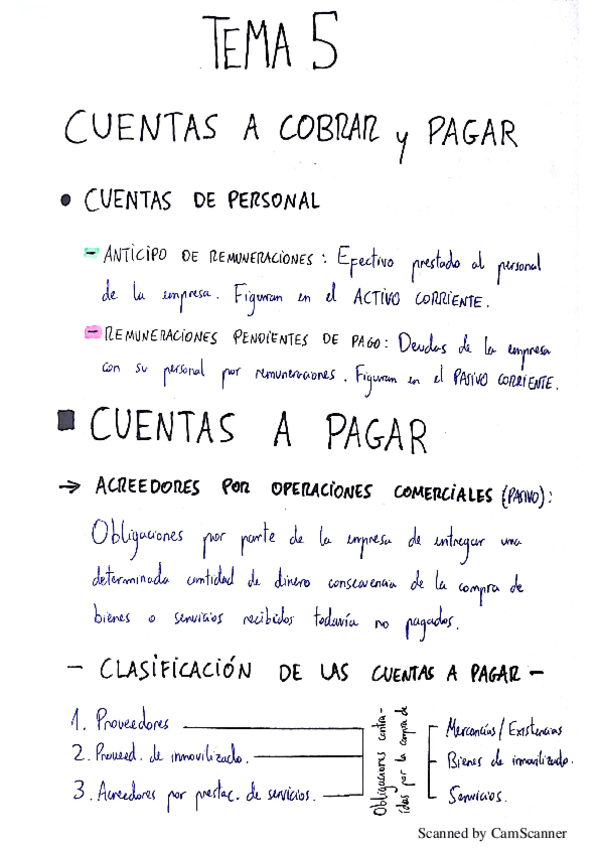 TEMA 5
CUENTAS A COBRAR y PAGAR
• CUENTAS DE PERSONAL
- ANTICIPO DE REMUNERACIONES: Efectivo prestado al personal
de la empresa. Figuran en el ACTIVO CORRIENTE.
- REMUNERACIONES PENDIENTES DE PAGO: Deudas de la empresa
con su personal por remuneraciones. Figuran en el PASIVO CORRIENTE.
■ CUENTAS A PAGAR
→ ACREEDORES POR OPERACIONES COMERCIALES (PASIVO):
Obligaciones por parte de la empresa de entregar una
determinada cantidad de dinero consecuencia de la compra de
bienes o servicios recibidos todavía no pagados.
- CLASIFICACIÓN DE LAS CUENTAS A PAGAR -
1. Proveedores
2. Proveed. de inmovilizado.
3. Acreedores por prestac. de servicios.
Obligaciones contra-
idas por la compra de
Mercancías / Existencias
Bienes de inmovilizado.
Servicios.
Scanned by CamScanner